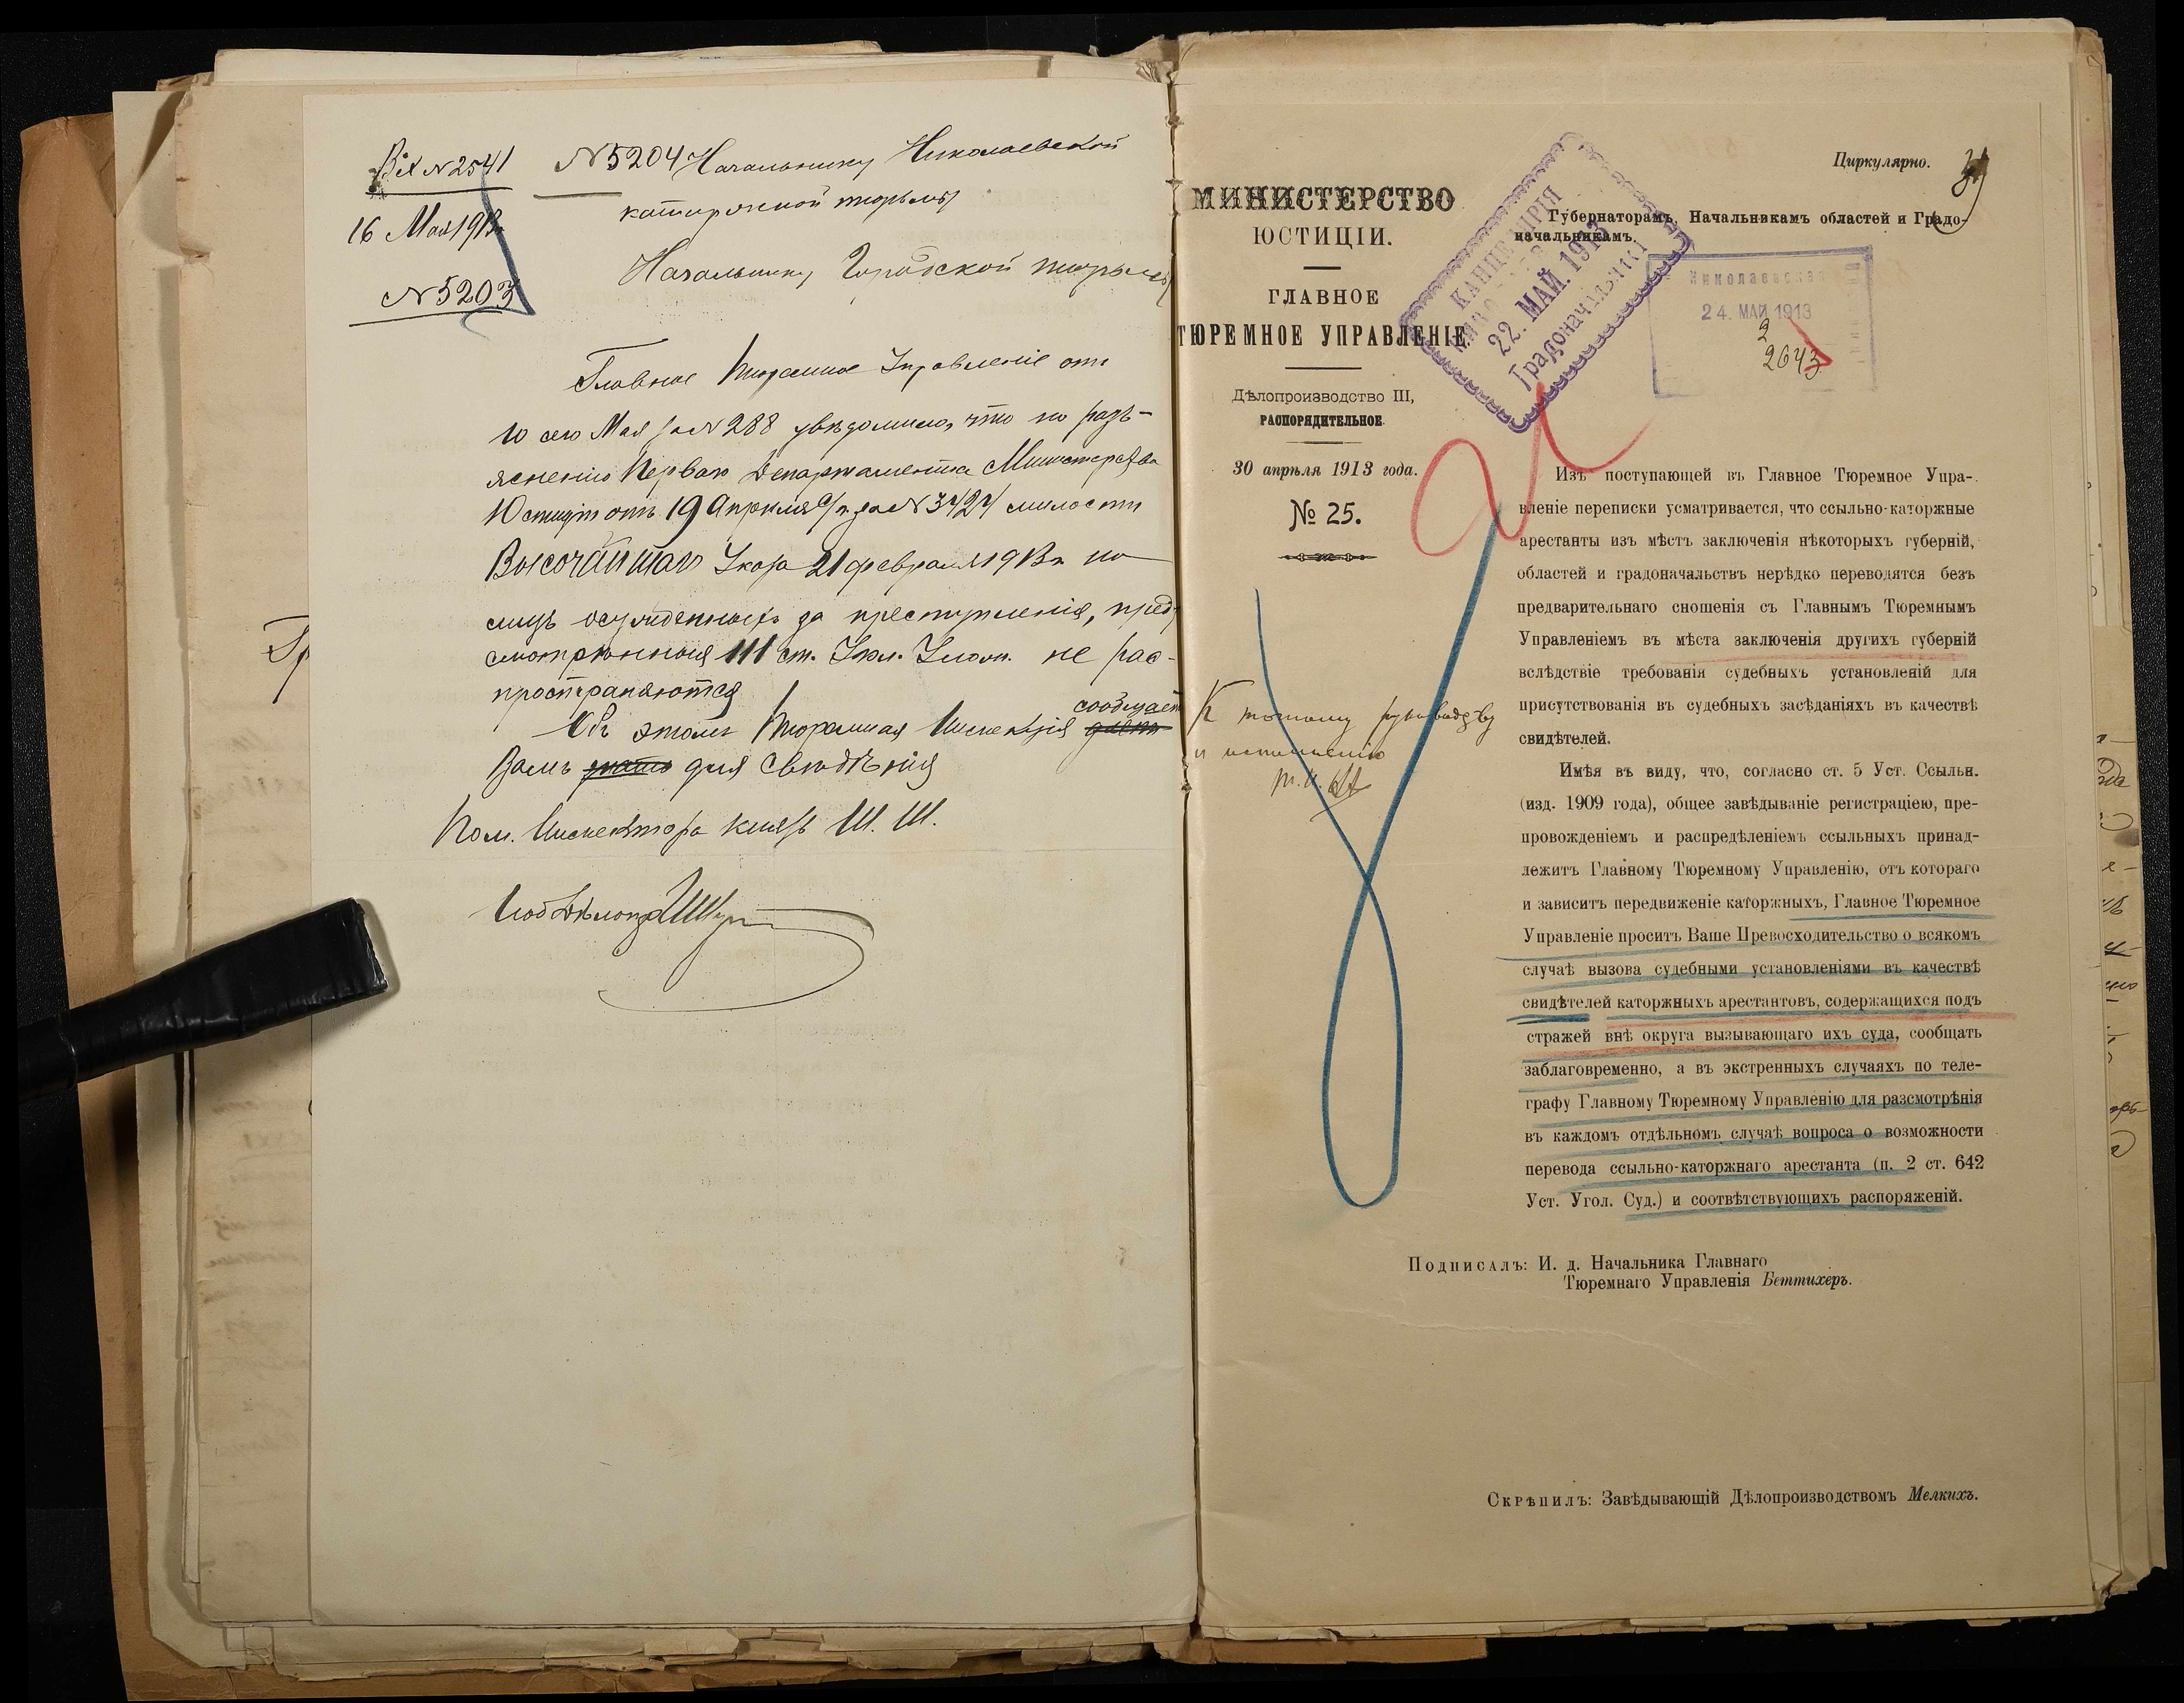 Вх N 2541
16 Мая 1913 г.
N 5203
N 5204 Начальнику Николаевской
каторжной тюрьмы
Начальнику Городской тюрьмы
Главное Тюремное Управленіе отъ
10 сего Мая за N 288 увѣдомило, что по разъ-
ясненію Перваго Департамента Министерства
Юстиціи отъ 19 Апрѣля с/г. за N 3424 милости
Высочайшаго Указа 21 февраля 1913 г. на
лицъ осужденныхъ за преступленія, пред-
смотрѣнныя 111 ст. Угол. Улож. не рас-
пространяются
Объ этомъ Тюремная Инспекція сообщаетъ
Вамъ для свѣдѣнія
Пом. Инспектора князь Ш. Ш.
МИНИСТЕРСТВО
ЮСТИЦІИ.
ГЛАВНОЕ
ТЮРЕМНОЕ УПРАВЛЕНІЕ
Дѣлопроизводство III,
РАСПОРЯДИТЕЛЬНОЕ.
30 апрѣля 1913 года.
№ 25.
К точному руководству
и исполненію
Циркулярно.
Губернаторамъ, Начальникамъ областей и Градо-
начальникамъ.
КАНЦЕЛЯРІЯ
22. МАЙ. 1913
Градоначальника
Николаевская
24. МАЙ 1913
2643
Изъ поступающей въ Главное Тюремное Упра-
вленіе переписки усматривается, что ссыльно-каторжные
арестанты изъ мѣстъ заключенія нѣкоторыхъ губерній,
областей и градоначальствъ нерѣдко переводятся безъ
предварительнаго сношенія съ Главнымъ Тюремнымъ
Управленіемъ въ мѣста заключенія другихъ губерній
вслѣдствіе требованія судебныхъ установленій для
присутствованія въ судебныхъ засѣданіяхъ въ качествѣ
свидѣтелей.
Имѣя въ виду, что, согласно ст. 5 Уст. Ссыльн.
(изд. 1909 года), общее завѣдываніе регистраціею, пре-
провожденіемъ и распредѣленіемъ ссыльныхъ принад-
лежитъ Главному Тюремному Управленію, отъ котораго
и зависитъ передвиженіе каторжныхъ, Главное Тюремное
Управленіе проситъ Ваше Превосходительство о всякомъ
случаѣ вызова судебными установленіями въ качествѣ
свидѣтелей каторжныхъ арестантовъ, содержащихся подъ
стражей внѣ округа вызывающаго ихъ суда, сообщать
заблаговременно, а въ экстренныхъ случаяхъ по теле-
графу Главному Тюремному Управленію для разсмотрѣнія
въ каждомъ отдѣльномъ случаѣ вопроса о возможности
перевода ссыльно-каторжнаго арестанта (п. 2 ст. 642
Уст. Угол. Суд.) и соотвѣтствующихъ распоряженій.
Подписалъ: И. д. Начальника Главнаго
Тюремнаго Управленія Беттихеръ.
Скрѣпилъ: Завѣдывающій Дѣлопроизводствомъ Мелкихъ.